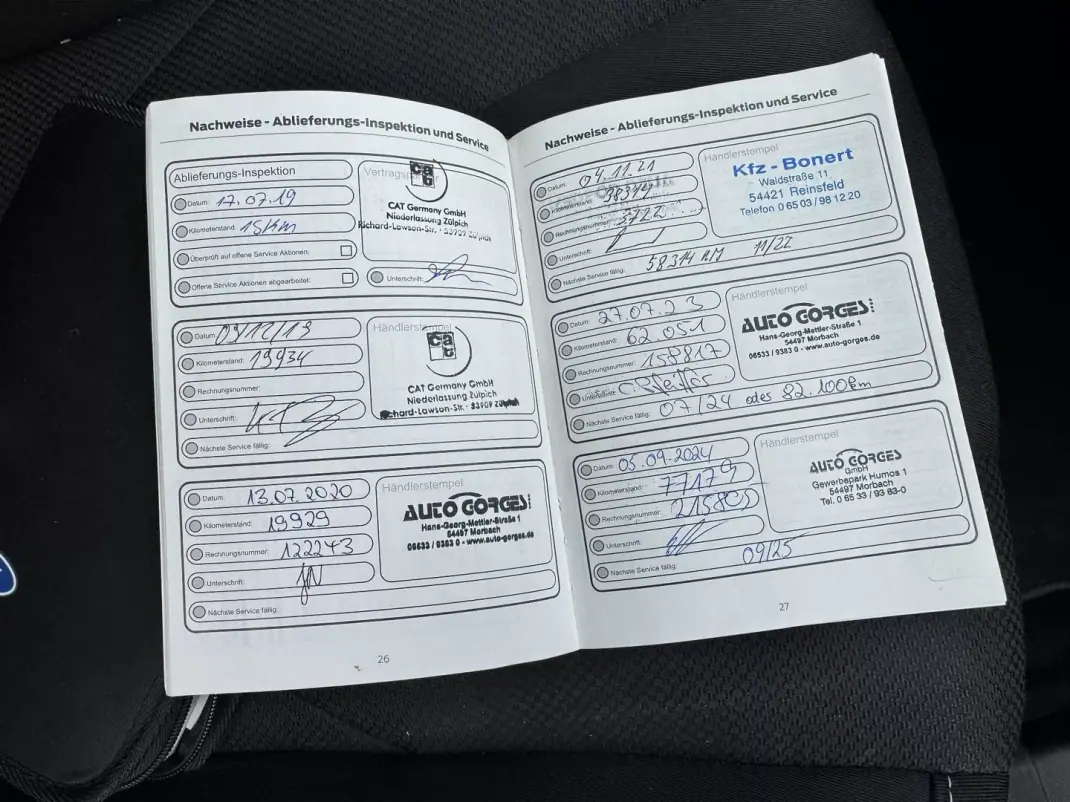 Nachweise - Ablieferungs-Inspektion und Service
Ablieferungs-Inspektion
Datum: 17.07.19
Kilometerstand: 15 Km
Überprüft auf offene Service Aktionen:
Offene Service Aktionen abgearbeitet:
CAT Germany GmbH
Niederlassung Zülpich
Richard-Lawson-Str. · 53909 Zülpich
Unterschrift:
Datum: 09/12/19
Kilometerstand: 19934
Rechnungsnummer:
Unterschrift:
Nächste Service fällig:
Händlerstempel
cat
CAT Germany GmbH
Niederlassung Zülpich
Richard-Lawson-Str. · 53909 Zülpich
Datum: 13.07.2020
Kilometerstand: 19929
Rechnungsnummer: 122243
Unterschrift:
Nächste Service fällig:
Händlerstempel
AUTO GORGES
Hans-Georg-Mettler-Straße 1
54497 Morbach
06533 / 9383 0 - www.auto-gorges.de
26
Nachweise - Ablieferungs-Inspektion und Service
Datum: 04.11.21
Kilometerstand: 38314
Rechnungsnummer: 3722
Unterschrift:
Nächste Service fällig: 58314 KM 11/22
Händlerstempel
Kfz - Bonert
Waldstraße 11
54421 Reinsfeld
Telefon 0 65 03 / 98 12 20
Datum: 27.07.23
Kilometerstand: 62 051
Rechnungsnummer: 158817
Unterschrift: C. Pfeiffer
Nächste Service fällig: 07/24 oder 82.100 km
Händlerstempel
AUTO GORGES
Hans-Georg-Mettler-Straße 1
54497 Morbach
06533 / 9383 0 - www.auto-gorges.de
Datum: 05.09.2024
Kilometerstand: 77179
Rechnungsnummer: 215805
Unterschrift:
Nächste Service fällig: 09/25
Händlerstempel
AUTO GORGES
GmbH
Gewerbepark Humos 1
54497 Morbach
Tel. 0 65 33 / 93 83-0
27